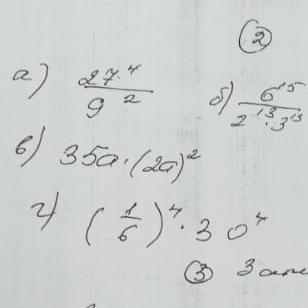 ②
а) 27·4 / 9²
б) 6¹⁵ / 2¹³·3¹³
в) 35a·(2a)²
г) (1/6)⁴·30⁴
③ Зап